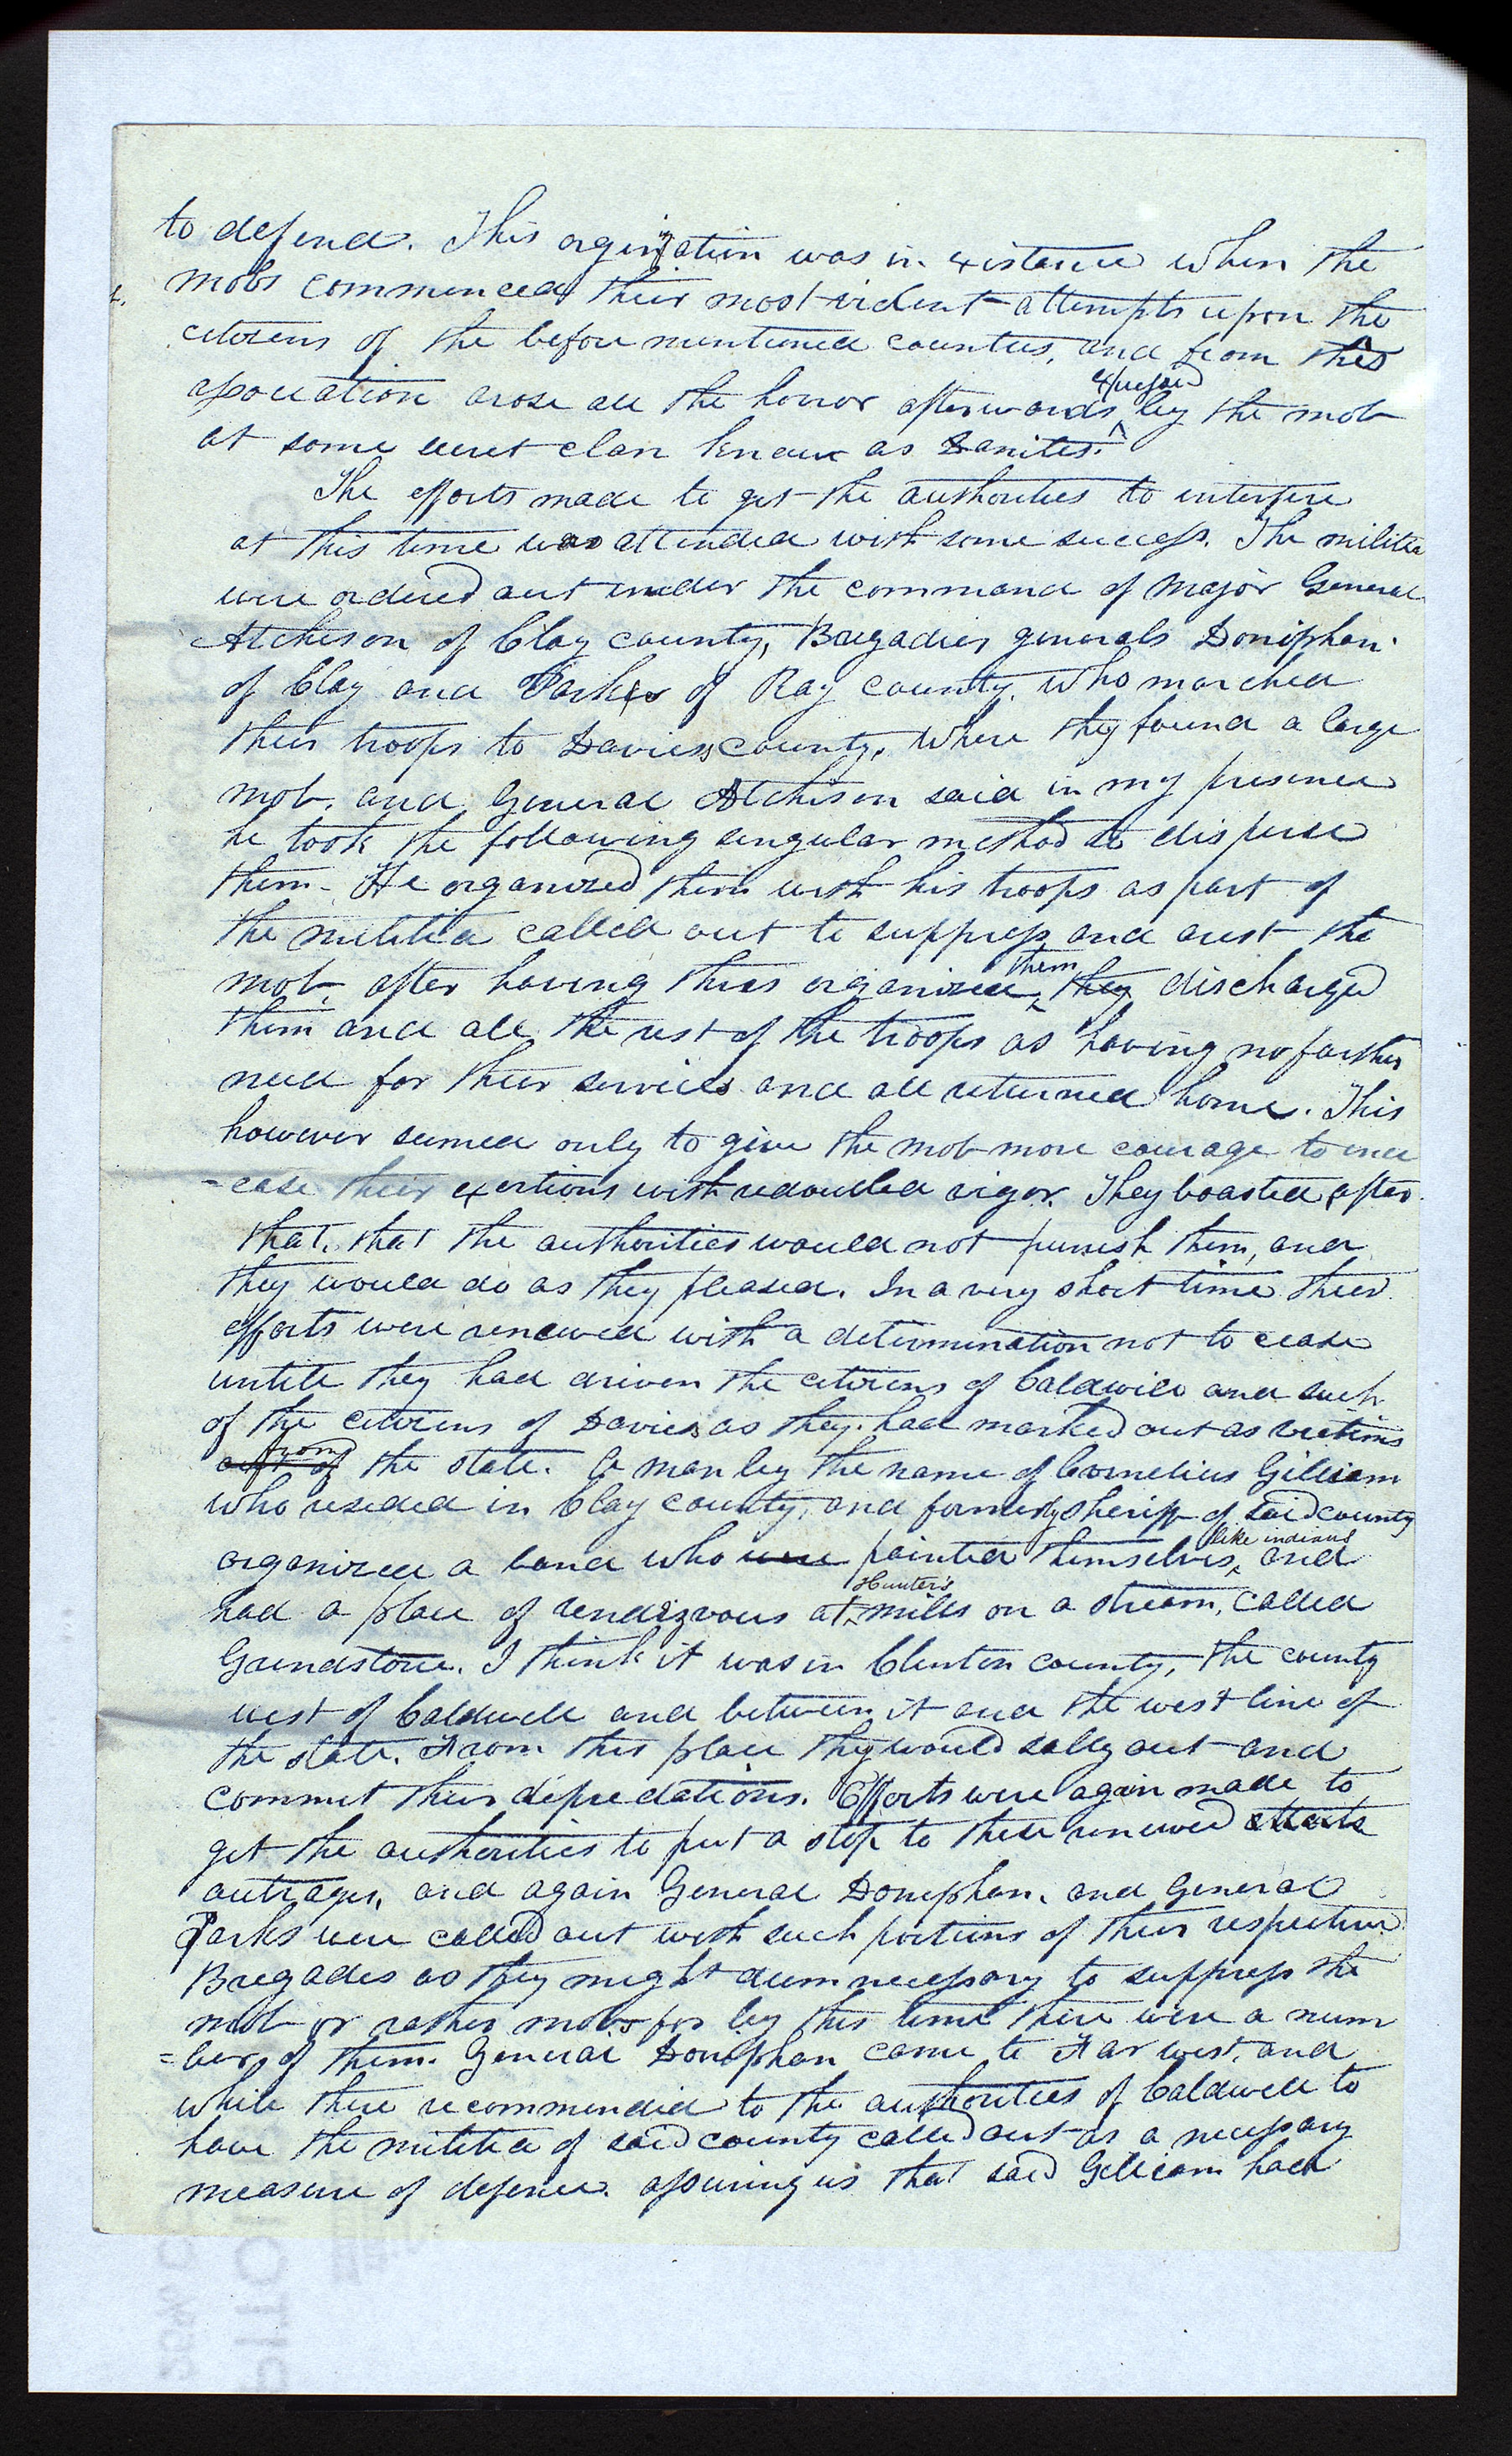 to defend. This orginization was in existance when the
mobs commenced their most violent attempts upon the
citizens of the before mentioned counties, and from this
association arose all the horror afterwards expressed by the mob
at some secret clan known as Danites.
The efforts made to get the authorities to interfere
at this time was attended with some success. The militia
were ordered out under the command of Major General
Atchison of Clay county, Bregadier generals Doniphan
of Clay and Parks of Ray county, who marched
their troops to Daviess county, where they found a large
mob, and General Atchison said in my presence
he took the following singular method to disperse
them. He organized them with his troops as part of
the militia called out to suppress and arest the
mob, after having thus organized them they discharged
them and all the rest of the troops as having no farther
need for their services and all returned home. This
however seemed only to give the mob more courage to incr
=ease their exertions with redoubled vigor. They boasted after
that, that the authorities would not punish them, and
they would do as they pleased. In a very short time their
efforts were renewed with a determination not to cease
untill they had driven the citizens of Caldwell and such
of the citizens of Daviess as they had marked out as victims
out of from the state. A man by the name of Cornelius Gilliam
who resided in Clay county, and formerly sheriff of said county
organized a band who were painted themselves like indians, and
had a place of rendezvous at Hunter's mills on a stream, called
Grindstone. I think it was in Clinton county, the county
west of Caldwell and between it and the west line of
the state. From this place they would sally out and
commit their depredations. Efforts were again made to
get the authorities to put a stop to these renewed
outrages, and again General Doniphan, and General
Parks were called out with such portions of their respective
Bregades as they might deem necessary to suppress the
mob or rather mobs for by this time there were a num
=ber of them. General Doniphan came to Far west, and
while there recommended to the authorities of Caldwell to
have the militia of said county called out as a necessary
measure of defence. assuring us that said Gilliam had